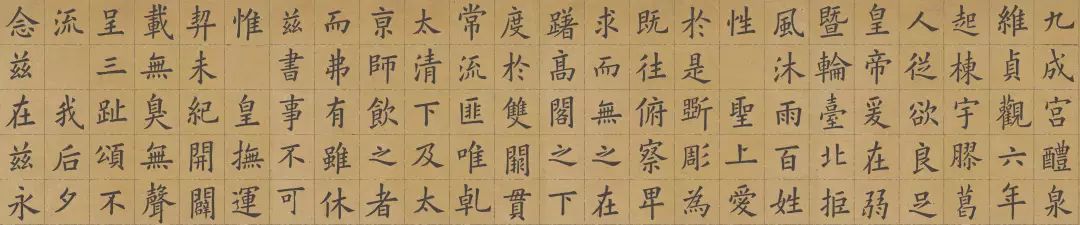 九成宮醴泉
維貞觀六年
起棟宇膠葛
人從欲良足
皇帝爰在弱
暨輪臺北拒
風沐雨百姓
性 聖上愛
於是斲彫為
既往俯察卑
求而無之在
躇高閣之下
度於雙關貫
常流匪唯乹
太清下及太
亰師飲之者
而弗有雖休
茲書事不可
惟 皇撫運
契未紀開闢
載無臭無聲
呈三趾頌不
流 我后夕
念茲在茲永